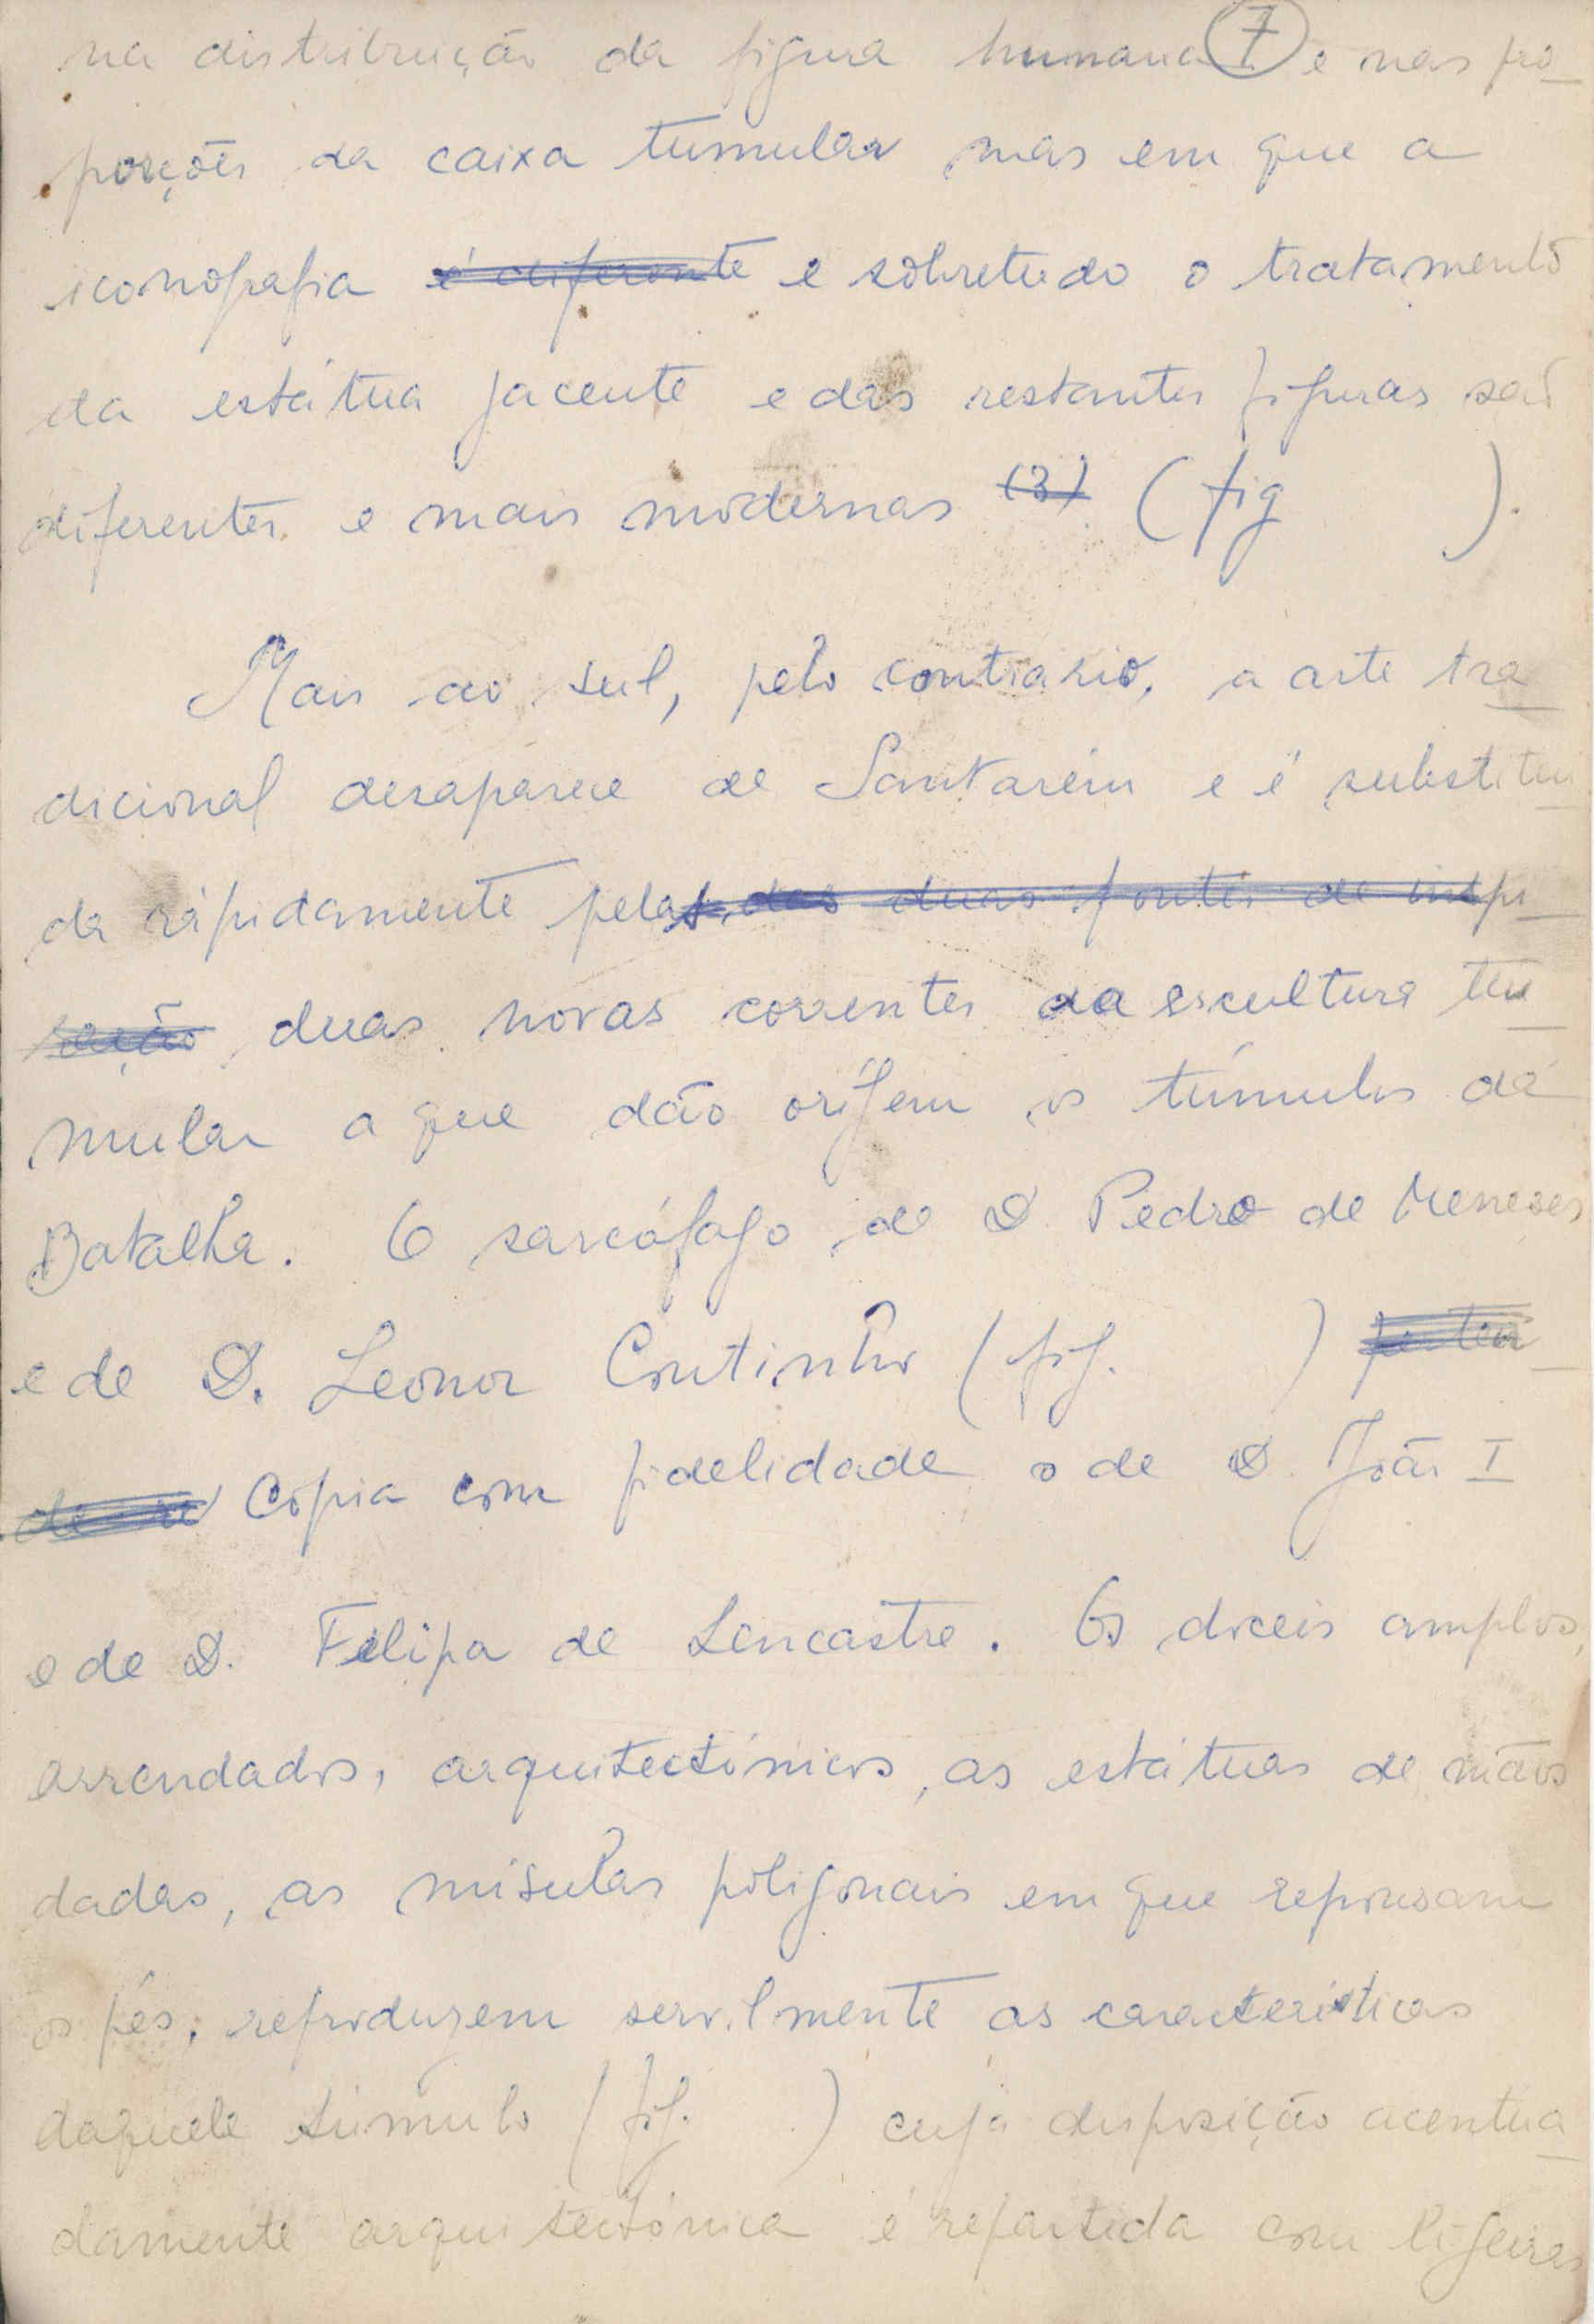 na distribuição da figura humana (7) e nas pro-
porções da caixa tumular mas em que a
iconografia é diferente e sobretudo o tratamento
da estátua jacente e das restantes figuras são
diferentes e mais modernas (3) (fig ).
Mais ao sul, pelo contrario, a arte tra-
dicional desaparece de Santarém e é substitui-
da ràpidamente pelas das duas fontes de inspi-
ração duas novas correntes da escultura tu-
mular a que dão orígem os túmulos da
Batalha. O sarcófago de D. Pedro de Meneses
e de D. Leonor Coutinho (fig. )
Copia com fidelidade o de D. João I
e de D. Felipa de Lencastre. Os doceis amplos,
arrendados, arquitectónicos, as estátuas de mãos
dadas, as mísulas poligonais em que repousam
os pés, reproduzem servilmente as características
daquele túmulo (fig. ) cuja disposição acentua-
damente arquitectónica é repartida com ligeiras